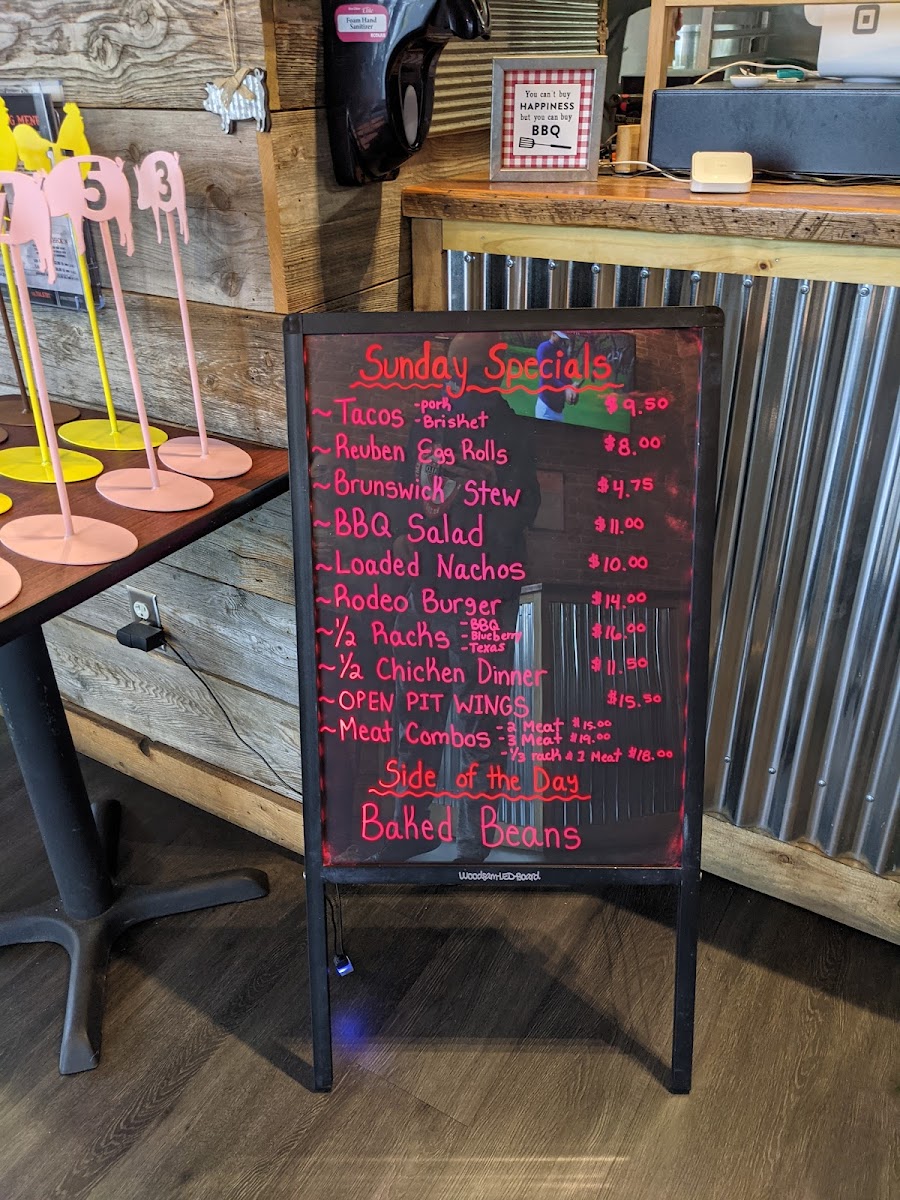 Rose's Elite
Foam Hand
Sanitizer
You can't buy
HAPPINESS
but you can buy
BBQ
MENU
7
5
3
Sunday Specials
~Tacos -pork -Brisket $9.50
~Reuben Egg Rolls $8.00
~Brunswick Stew $4.75
~BBQ Salad $11.00
~Loaded Nachos $10.00
~Rodeo Burger $14.00
~1/2 Racks -BBQ -Blueberry -Texas $16.00
~1/2 Chicken Dinner $11.50
~OPEN PIT WINGS $15.50
~Meat Combos -2 Meat $15.00
-3 Meat $19.00
-1/3 rack & 1 Meat $18.00
Side of the Day
Baked Beans
Woodsam LED Board